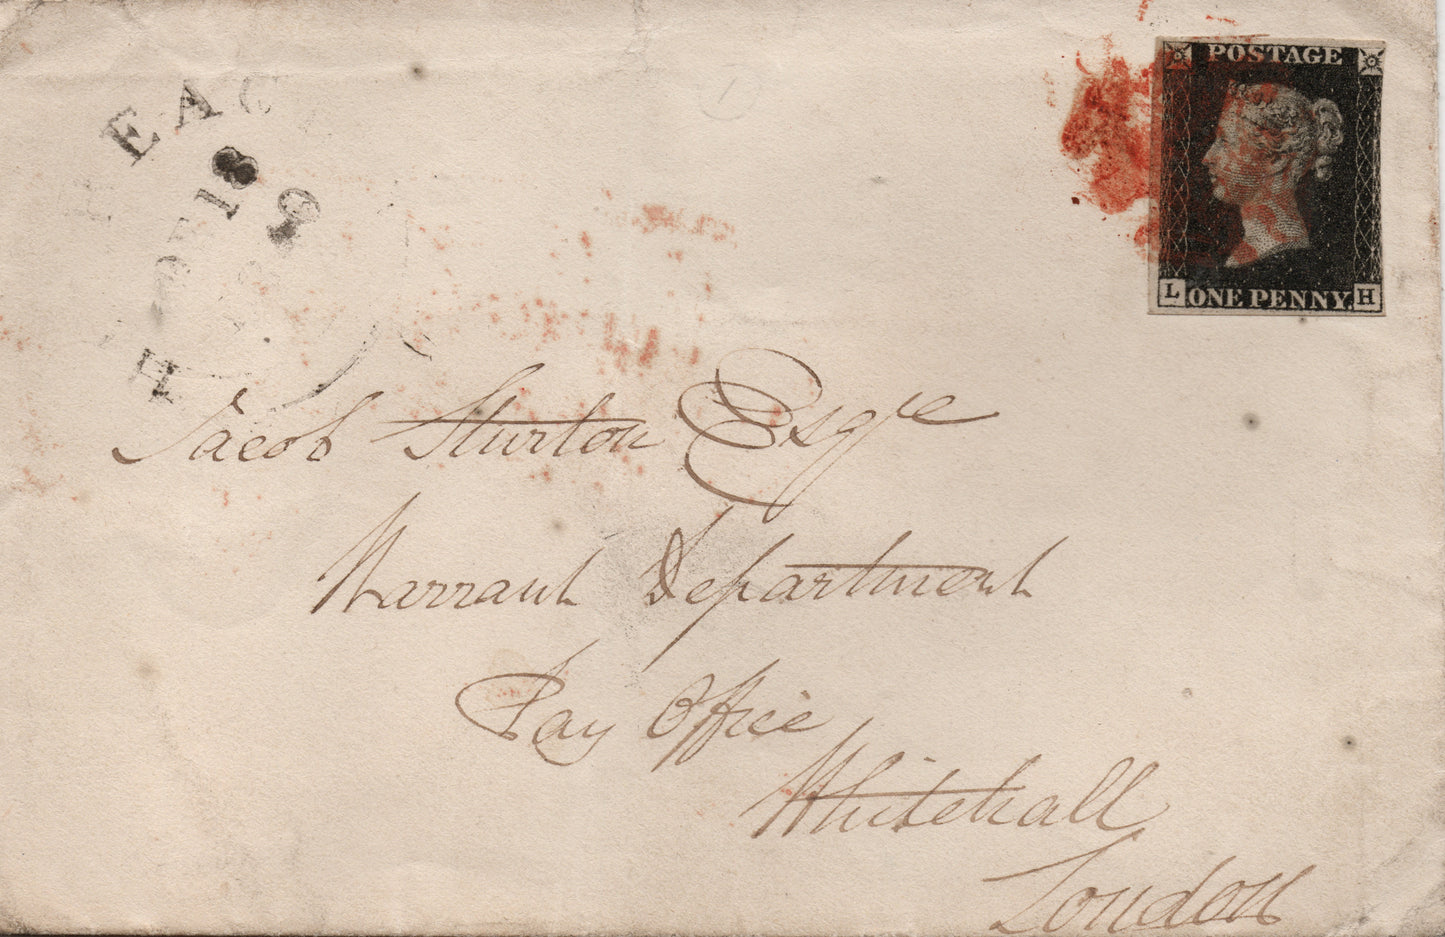 POSTAGE
L ONE PENNY. H
EAC
18
H
Jacob Sturton Esqre
Warrant Department
Pay Office
Whitehall
London